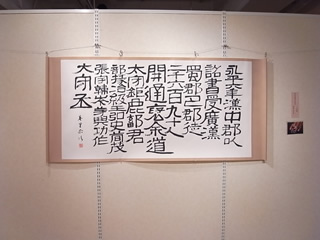 永平六年漢中郡以
詔書受廣漢
蜀郡巴郡徒
二千六百九十人
開通褒余道
太守鉅鹿鄐君
部掾治級王弘史荀茂
張宇韓岑等典功作
太守丞